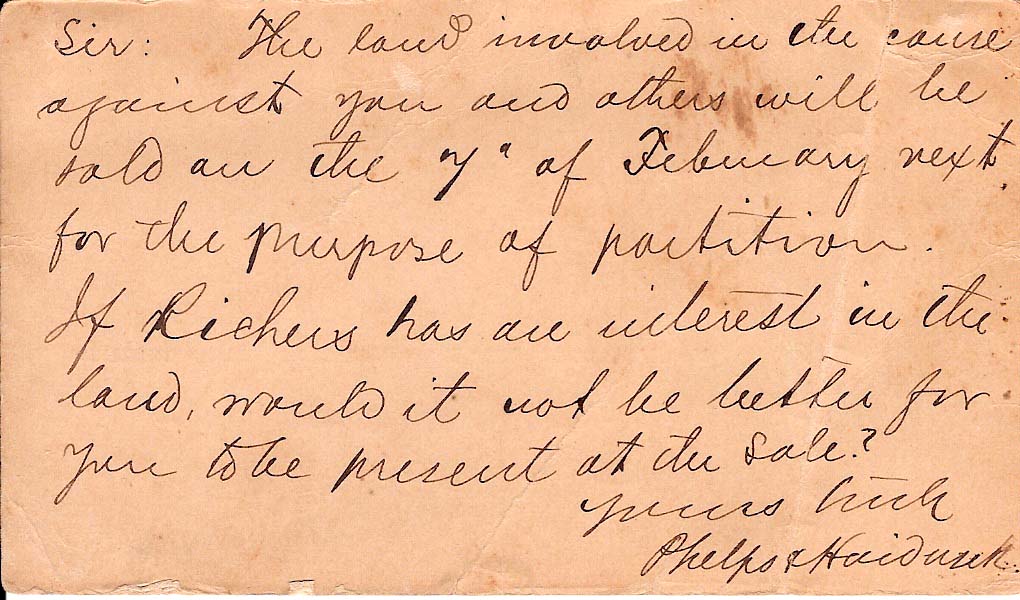 Sir: The land involved in the cause
against you and others will be
sold on the 7" of February next
for the purpose of partition.
If Richers has an interest in the
land, would it not be better for
you to be present at the sale?
yours truly
Phelps & Haidusek.